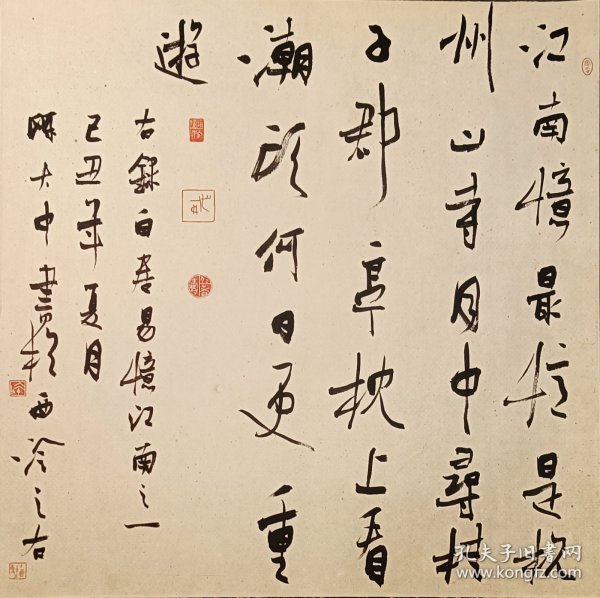 江南憶最憶是杭
州山寺月中尋桂
子郡亭枕上看
潮頭何日更重
遊
右錄白居易憶江南之一
己丑年夏月
陳大中書於西泠之右
孔夫子旧书网
www.kongfz.com